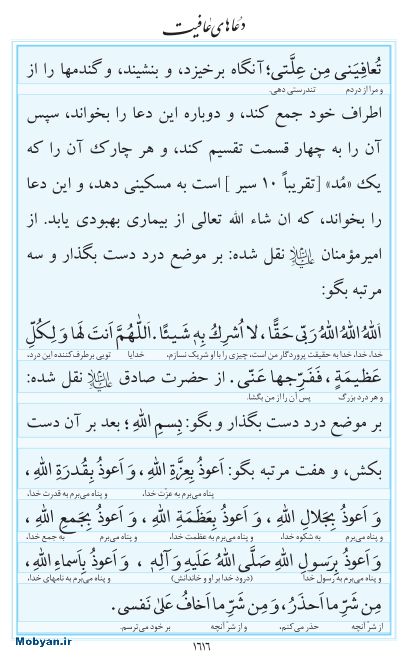 دعاهای عافیت
تُعافِیَنی مِن عِلَّتی؛ آنگاه برخیزد، و بنشیند، و گندمها را از
و مرا از دردم تندرستی دهی.
اطراف خود جمع کند، و دوباره این دعا را بخواند، سپس
آن را به چهار قسمت تقسیم کند، و هر چارک آن را که
یک «مُد» [تقریباً ۱۰ سیر ] است به مسکینی دهد، و این دعا
را بخواند، که ان شاء الله تعالی از بیماری بهبودی یابد. از
امیرمؤمنان علیه‌السلام نقل شده: بر موضع درد دست بگذار و سه
مرتبه بگو:
اَللهُ اَللهُ اَللهُ رَبّی حَقًّا، لا اُشرِكُ بِهٖ شَیئًا. اَللّٰهُمَّ اَنتَ لَها وَ لِكُلِّ
خدا، خدا، خدا به حقیقت پروردگار من است، چیزی را با او شریک نسازم، خدایا تویی برطرف‌کننده این درد،
عَظیمَةٍ ، فَفَرِّجها عَنّی. از حضرت صادق علیه‌السلام نقل شده:
و هر درد بزرگ پس آن را از من بگشا.
بر موضع درد دست بگذار و بگو: بِسمِ اللهِ؛ بعد بر آن دست
بکش، و هفت مرتبه بگو: اَعوذُ بِعِزَّةِ اللهِ، وَ اَعوذُ بِقُدرَةِ اللهِ ،
پناه می‌برم به عزّت خدا، و پناه می‌برم به قدرت خدا،
وَ اَعوذُ بِجَلالِ اللهِ ، وَ اَعوذُ بِعَظَمَةِ اللهِ ، وَ اَعوذُ بِجَمعِ اللهِ ،
و پناه می‌برم به شکوه خدا، و پناه می‌برم به عظمت خدا، و پناه می‌برم به جمع خدا،
وَ اَعوذُ بِرَسولِ اللهِ صَلَّی اللهُ عَلَیهِ وَ آلِهٖ ، وَ اَعوذُ بِاَسماءِ اللهِ،
و پناه می‌برم به رسول خدا (درود خدا بر او و خاندانش) و پناه می‌برم به نامهای خدا،
مِن شَرِّ ما اَحذَرُ، وَ مِن شَرِّ ما اَخافُ عَلیٰ نَفسی.
از شرّ آنچه حذر می‌کنم، و از شرّ آنچه بر خود می‌ترسم.
۱٦۱٦
Mobyan.ir